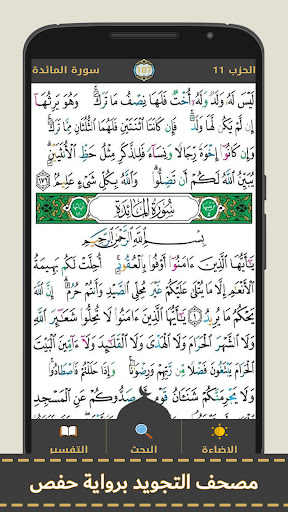 الحزب 11
107
سورة المائدة
لَيْسَ لَهُۥ وَلَدٌ وَلَهُۥٓ أُخْتٌ فَلَهَا نِصْفُ مَا تَرَكَ ۚ وَهُوَ يَرِثُهَآ
إِن لَّمْ يَكُن لَّهَا وَلَدٌ ۚ فَإِن كَانَتَا ٱثْنَتَيْنِ فَلَهُمَا ٱلثُّلُثَانِ مِمَّا تَرَكَ ۚ
وَإِن كَانُوٓا۟ إِخْوَةً رِّجَالًا وَنِسَآءً فَلِلذَّكَرِ مِثْلُ حَظِّ ٱلْأُنثَيَيْنِ ۗ
يُبَيِّنُ ٱللَّهُ لَكُمْ أَن تَضِلُّوا۟ ۗ وَٱللَّهُ بِكُلِّ شَىْءٍ عَلِيمٌۢ ١٧٦
سُورَةُ المَائِدَةِ
بِسْمِ ٱللَّهِ ٱلرَّحْمَـٰنِ ٱلرَّحِيمِ
يَـٰٓأَيُّهَا ٱلَّذِينَ ءَامَنُوٓا۟ أَوْفُوا۟ بِٱلْعُقُودِ ۚ أُحِلَّتْ لَكُم بَهِيمَةُ
ٱلْأَنْعَـٰمِ إِلَّا مَا يُتْلَىٰ عَلَيْكُمْ غَيْرَ مُحِلِّى ٱلصَّيْدِ وَأَنتُمْ حُرُمٌ ۗ إِنَّ ٱللَّهَ يَحْكُمُ
مَا يُرِيدُ ١ يَـٰٓأَيُّهَا ٱلَّذِينَ ءَامَنُوا۟ لَا تُحِلُّوا۟ شَعَـٰٓئِرَ ٱللَّهِ
وَلَا ٱلشَّهْرَ ٱلْحَرَامَ وَلَا ٱلْهَدْىَ وَلَا ٱلْقَلَـٰٓئِدَ وَلَآ ءَآمِّينَ ٱلْبَيْتَ
ٱلْحَرَامَ يَبْتَغُونَ فَضْلًا مِّن رَّبِّهِمْ وَرِضْوَٰنًا ۚ وَإِذَا حَلَلْتُمْ فَٱصْطَادُوا۟ ۚ
وَلَا يَجْرِمَنَّكُمْ شَنَـَٔانُ قَوْمٍ أَن صَدُّوكُمْ عَنِ ٱلْمَسْجِدِ
الاضاءة
البحث
التفسير
مصحف التجويد برواية حفص